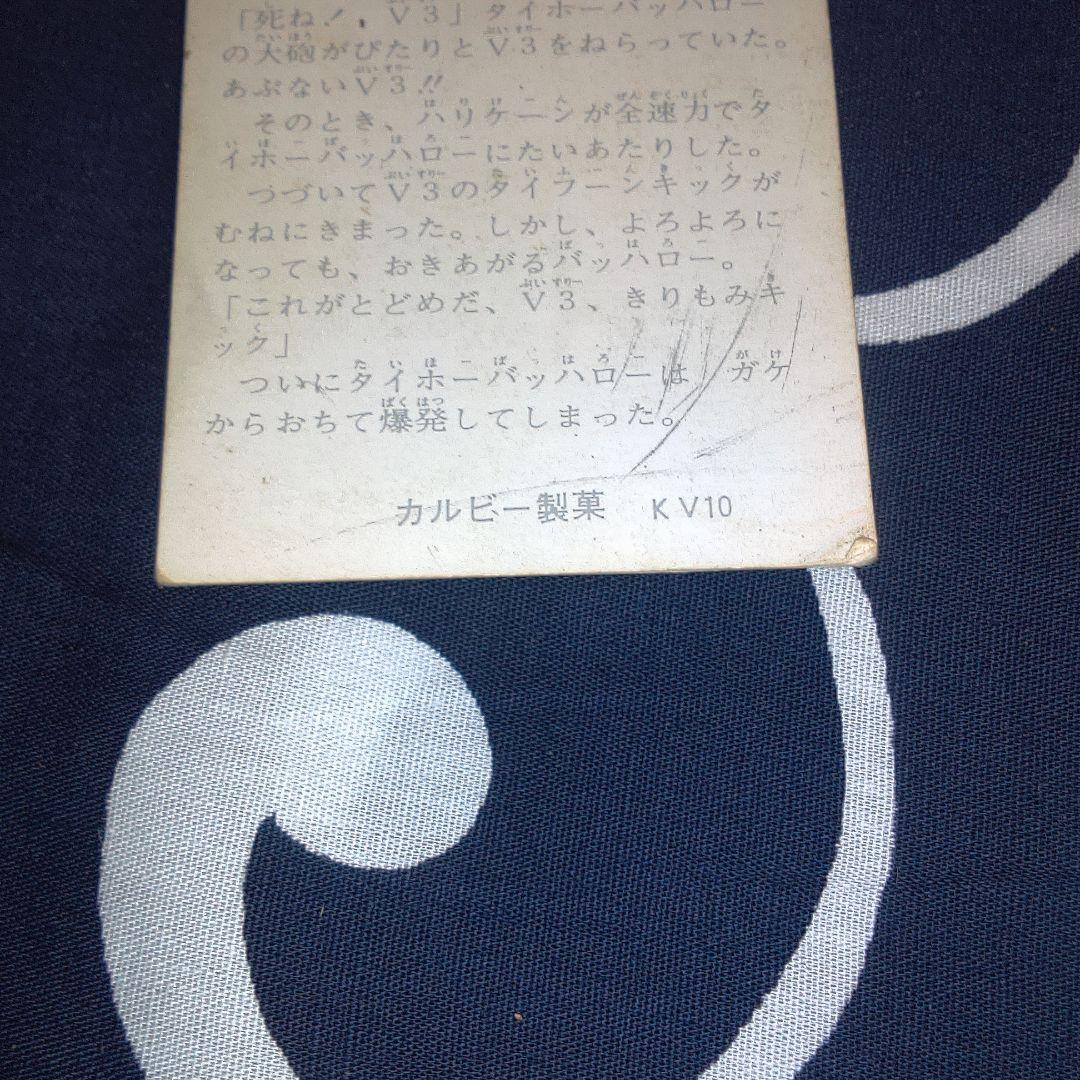 「死ね！、V3」タイホーバッハロー
の大砲がぴたりとV3をねらっていた。
あぶないV3!!
そのとき、ハリケーンが全速力でタ
イホーバッハローにたいあたりした。
つづいてV3のタイフーンキックが
むねにきまった。しかし、よろよろに
なっても、おきあがるバッハロー。
「これがとどめだ、V3、きりもみキ
ック」
ついにタイホーバッハローは ガケ
からおちて爆発してしまった。
カルビー製菓 KV10